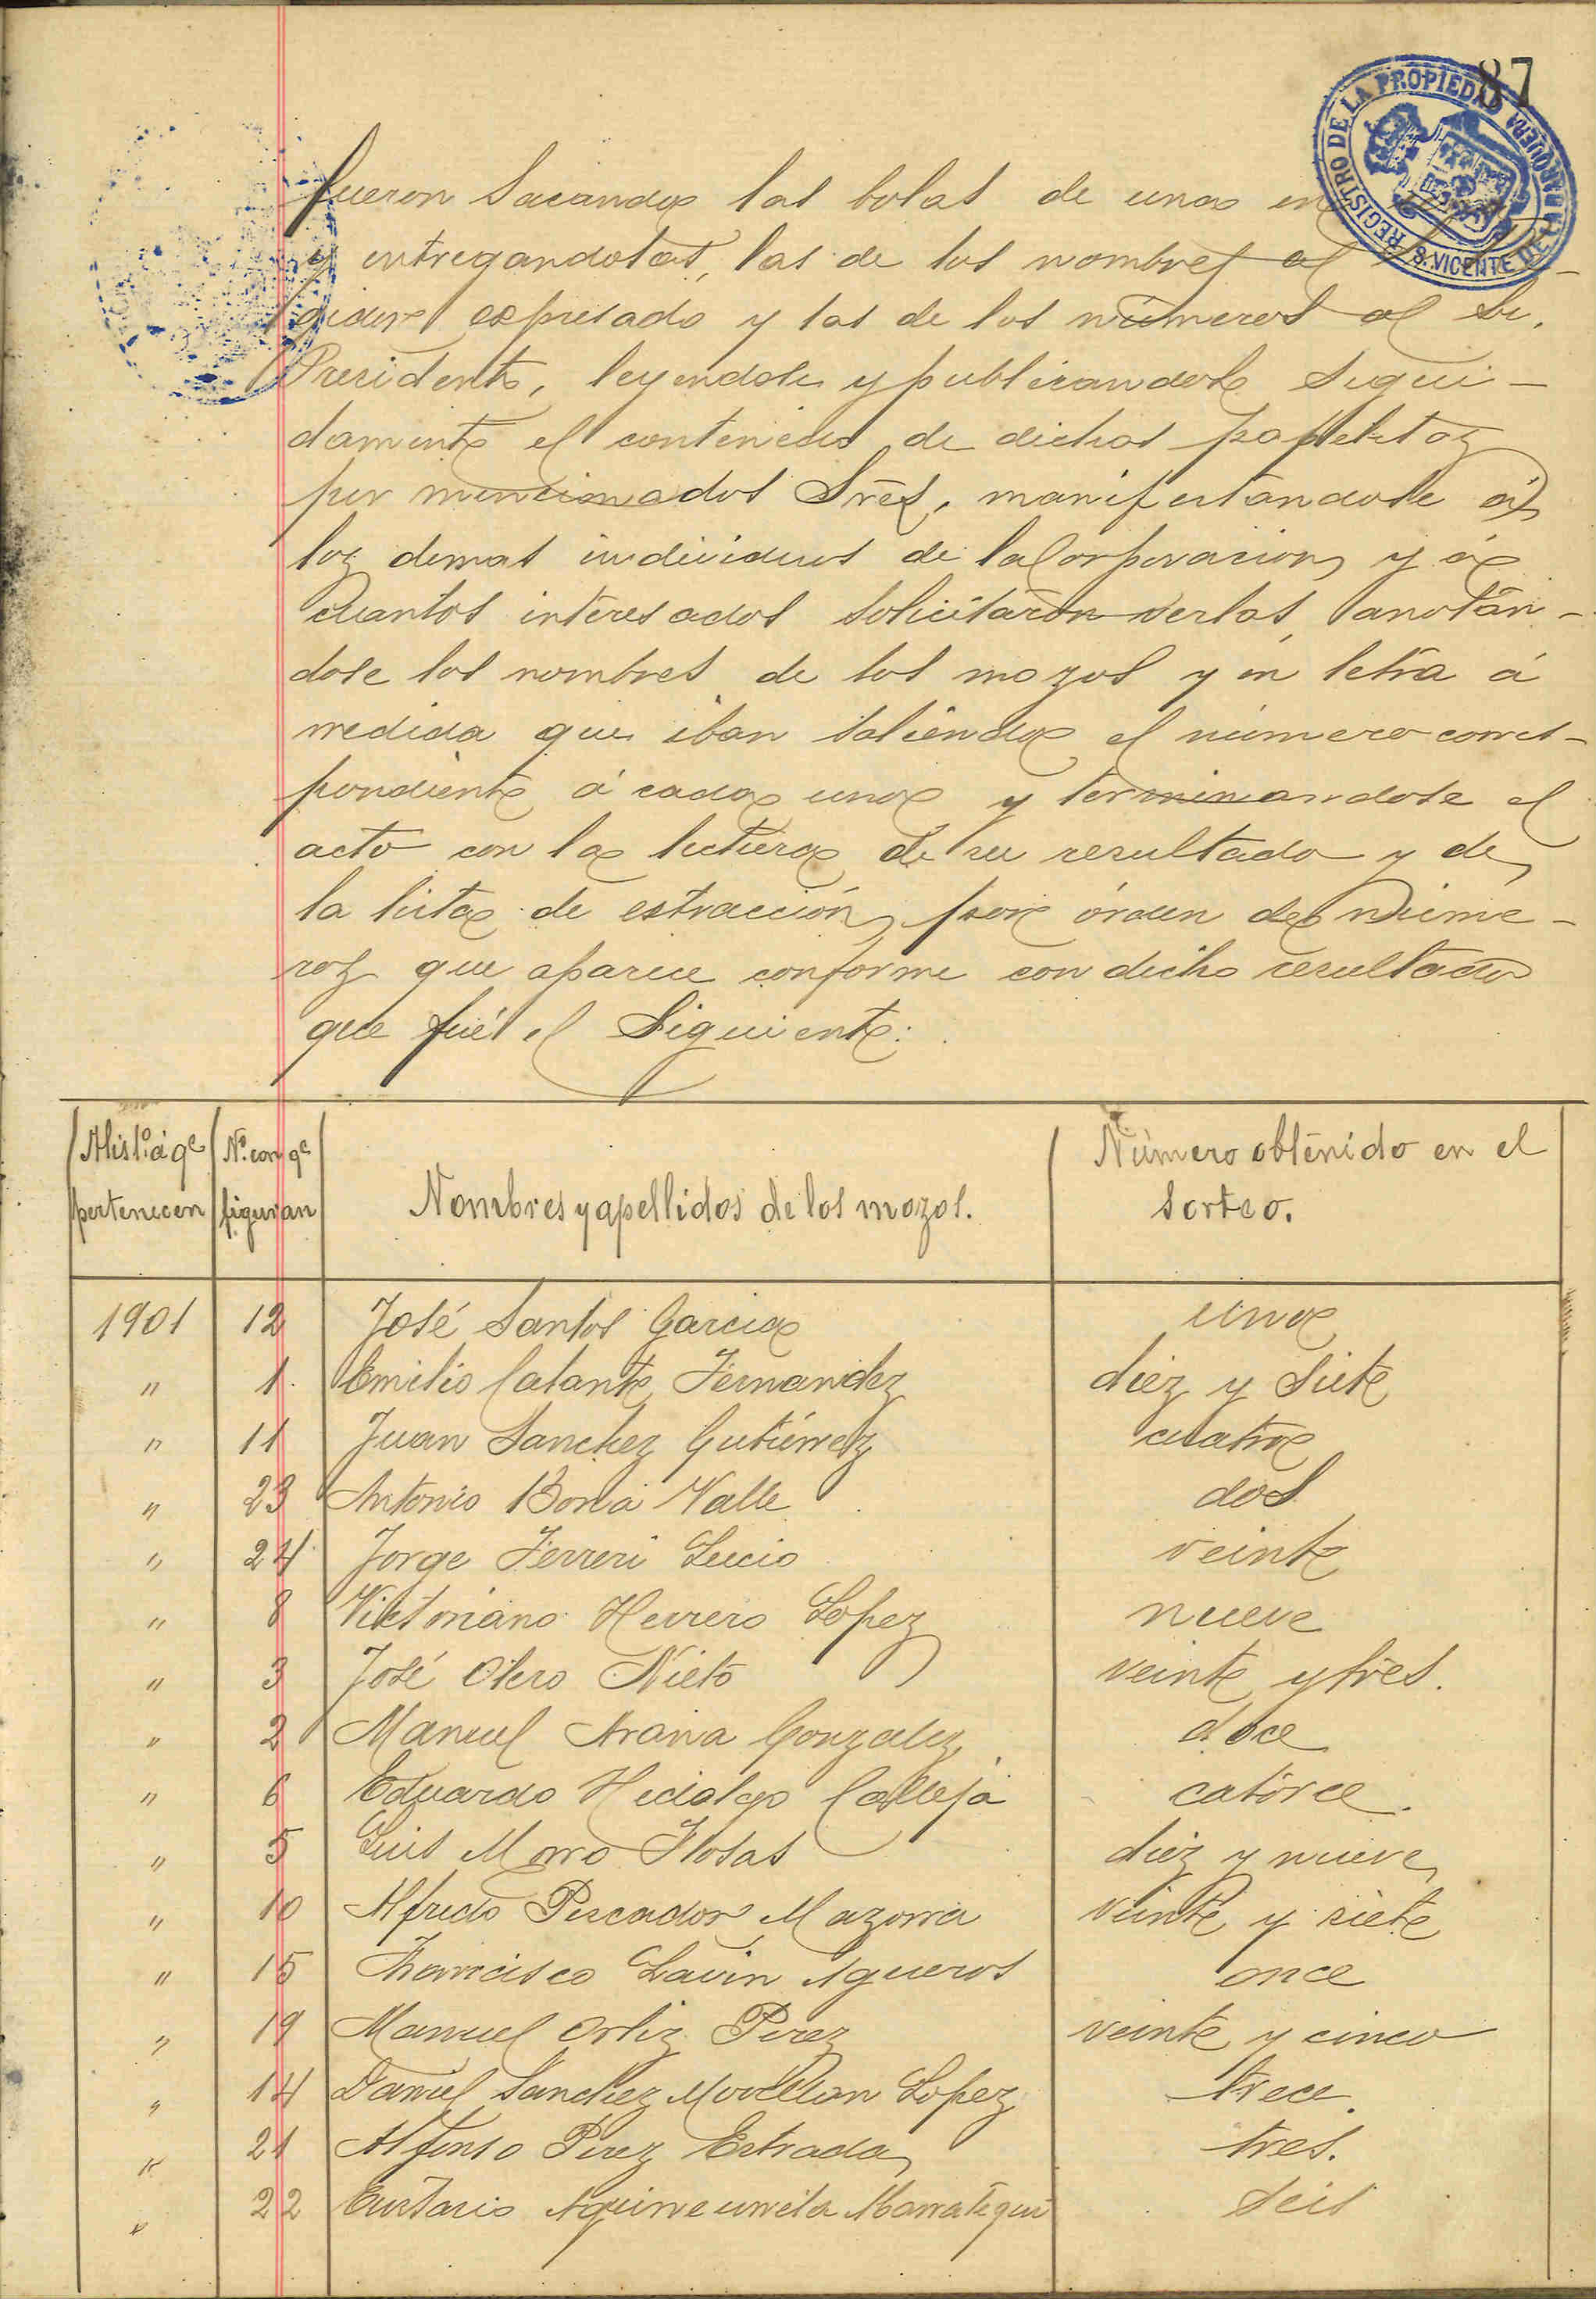 87
REGISTRO DE LA PROPIEDAD
S. VICENTE DE LA BARQUERA
fueron sacando las bolas de una en
y entregandolas, las de los nombres al
gidor expresado y las de los números al Sr.
Presidente, leyendole y publicandole segui-
damente el contenido de dichas papeletas
por mencionados Sres, manifestandole á
los demas individuos de la Corporacion y á
cuantos interesados solicitaron verlas, anotán-
dose los nombres de los mozos y en letra á
medida que iban saliendo el número corres-
pondiente á cada uno y terminandose el
acto con la lectura de su resultado y de
la lista de estracción por órden de núme-
ros que aparece conforme con dicho resultado
que fué el siguiente:
Alistº á qe pertenecen | Nº con qe figuran | Nombres y apellidos de los mozos. | Número obtenido en el sorteo.
1901 12 José Santos Garcia uno
" 1 Emilio Calante Fernandez diez y siete
" 11 Juan Sanchez Gutiérrez cuatro
" 23 Antonio Borja Valle dos
" 24 Jorge Ferreri Lucio veinte
" 8 Victoriano Herrero Lopez nueve
" 3 José Otero Nieto veinte y tres.
" 2 Manuel Arana Gonzalez doce
" 6 Eduardo Hidalgo Calleja catorce.
" 5 Luis Moro diez y nueve
" 10 Alfredo Pescador Mazorra veinte y siete
" 15 Francisco Lavin Agueros once
" 19 Manuel Ortiz Perez veinte y cinco
" 14 Daniel Sanchez Movellan Lopez trece.
" 21 Alfonso Perez Estrada tres.
" 22 Eustasio seis